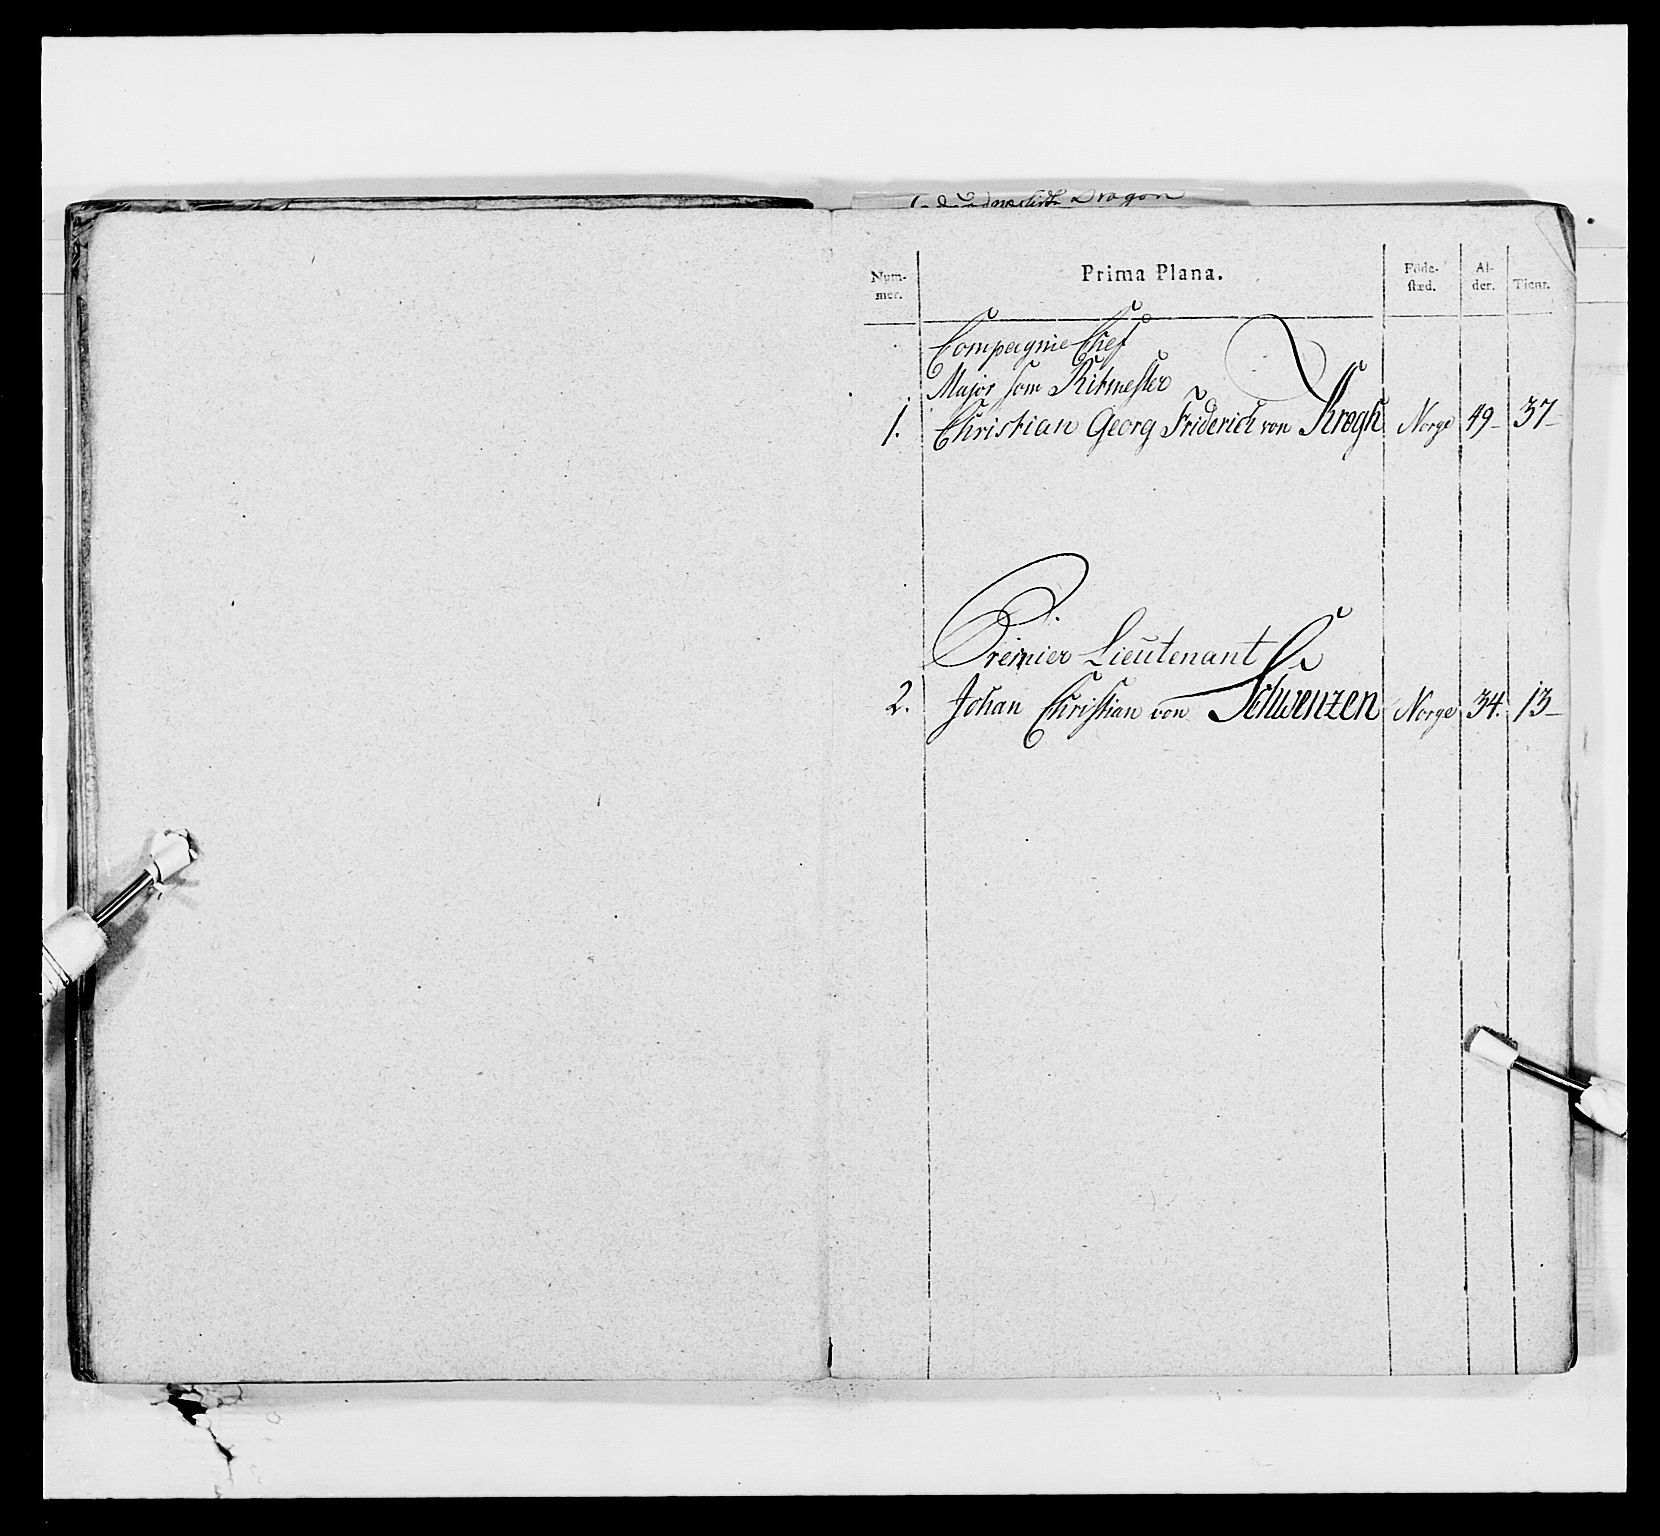 Dragon
Num-mer. Prima Plana. Föde-stæd. Al-der. Tienr.
Compagnie Chef
Major som Ritmester
1. Christian Georg Friderich von Krogh Norge 49 37
Premier Lieutenant
2. Johan Christian von Schwenzen Norge 34. 13